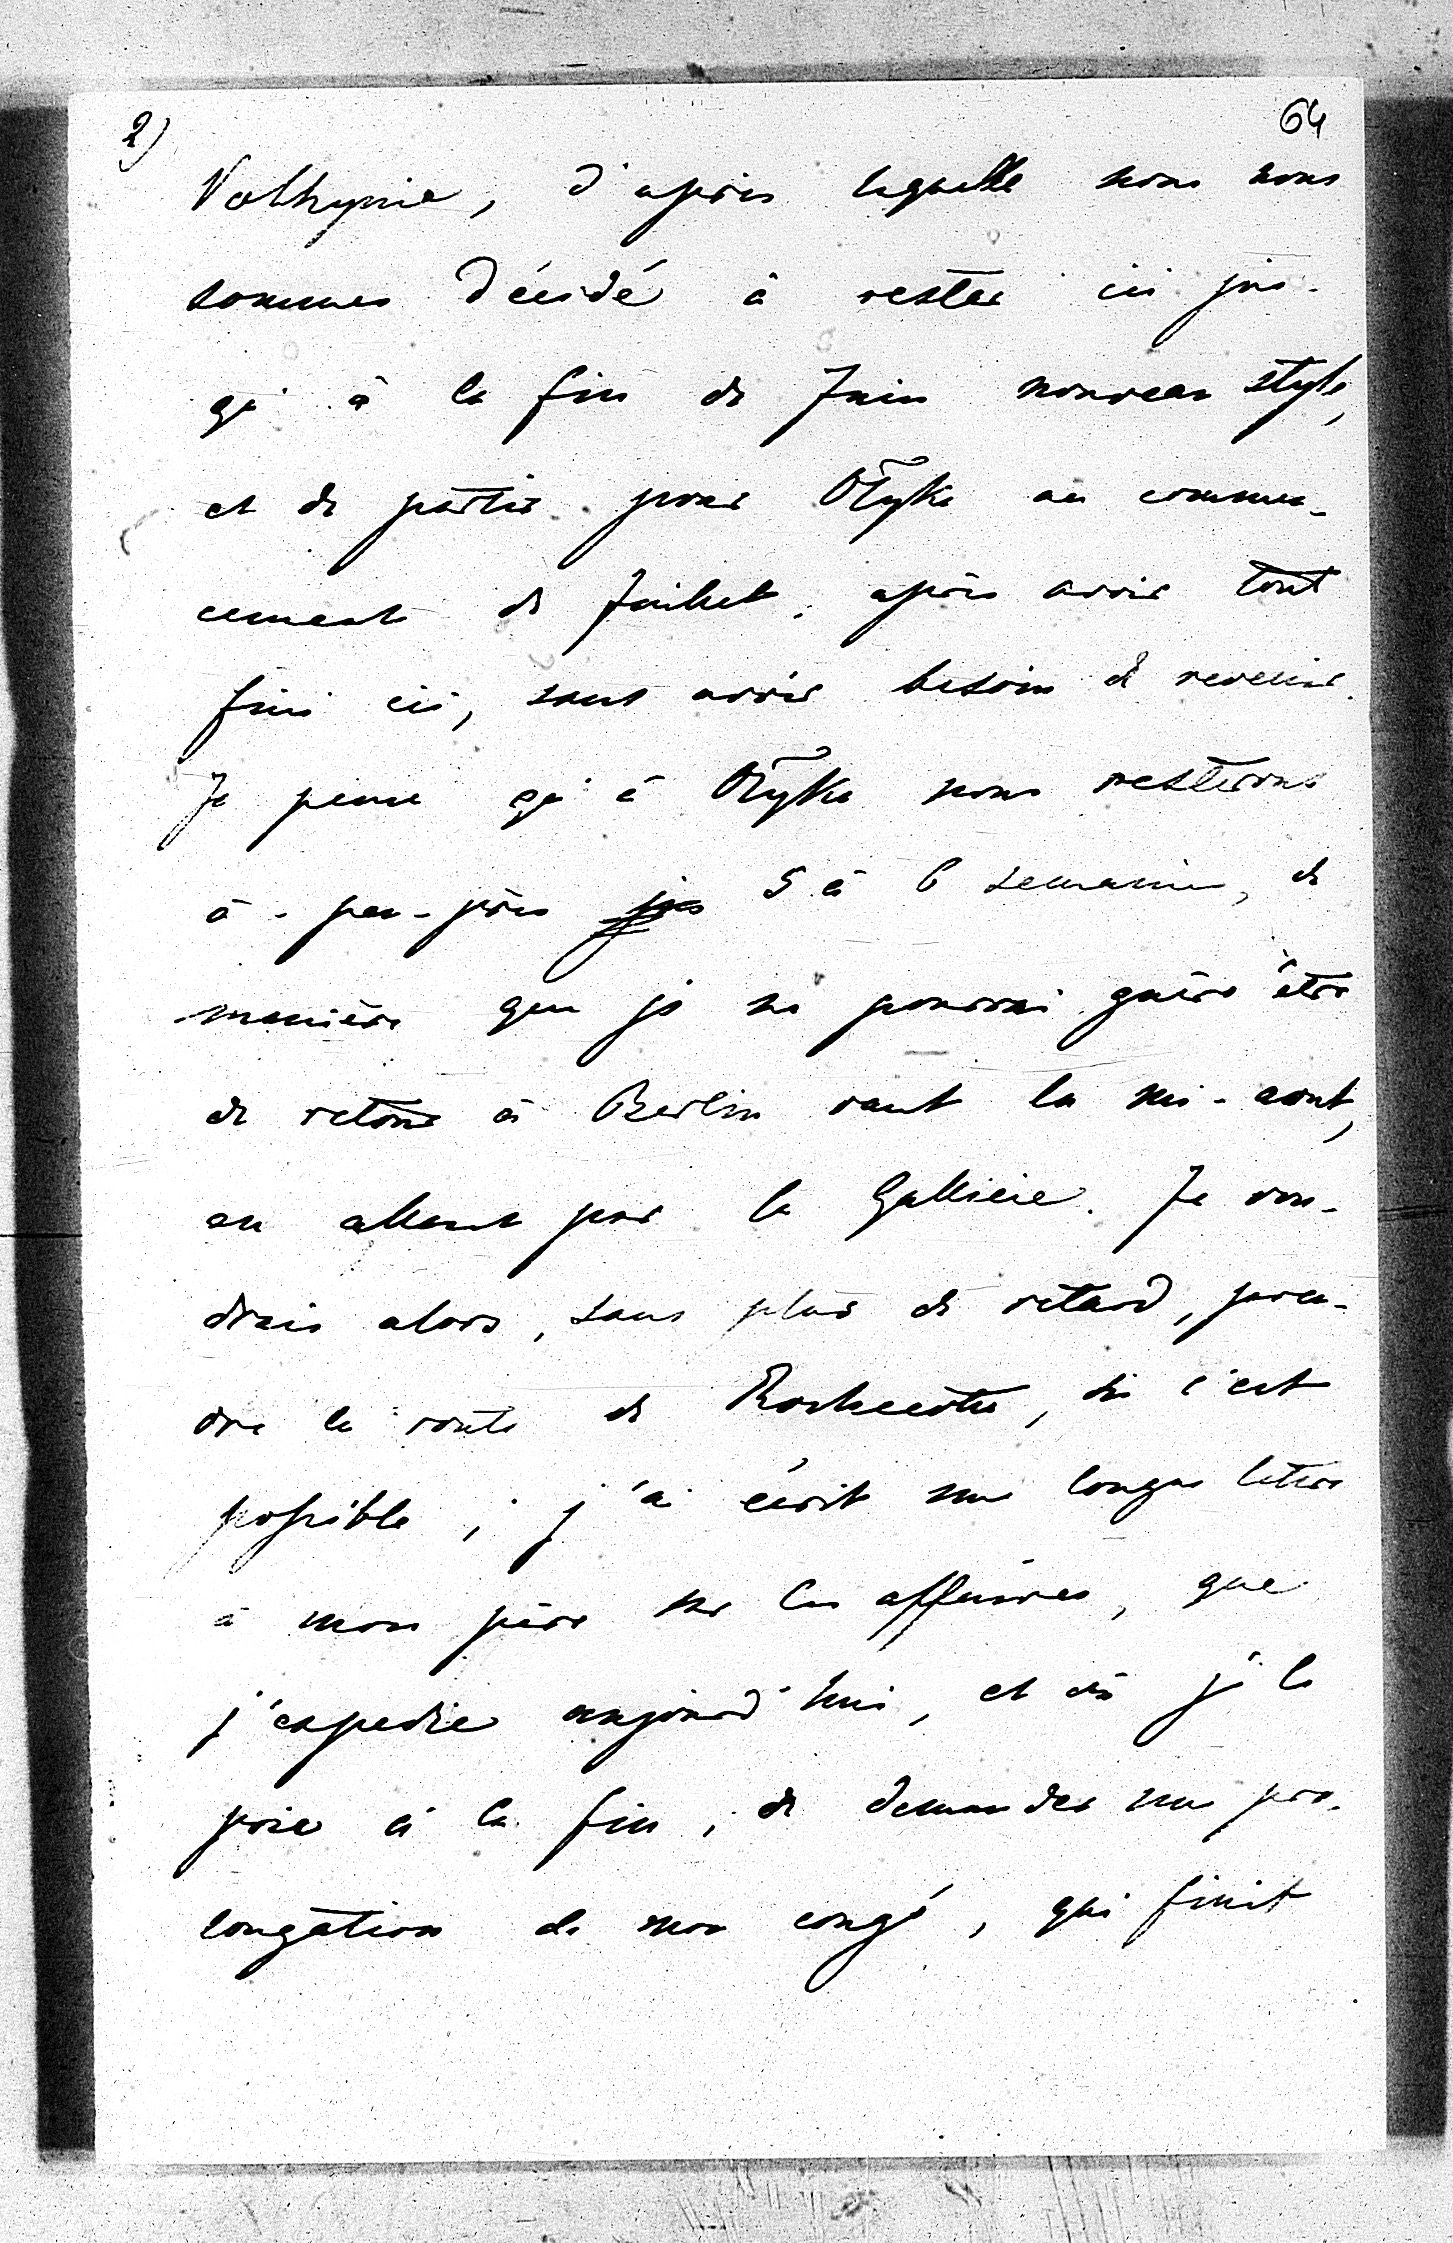 2)
64
Volhynie, d'après laquelle nous nous
sommes décidé à rester ici jus-
qu'à la fin de Juin nouveau style,
et de partir pour Ołyka au commen-
cement de Juillet, après avoir tout
fini ici, sans avoir besoin d'y revenir.
Je pense qu'à Ołyka nous resterons
à-peu-près 5 à 6 semaines, de
manière que je ne pourrai guère être
de retour à Berlin vant la mi-aout,
en allant par la Gallicie. Je vou-
drais alors, sans plus de retard, pren-
dre la route de Rochecotte, si c'est
possible; j'ai écrit une longue lettre
à mon père sur les affaires, que
j'expedie aujourd'hui, et où je le
prie à la fin, de demander une pro-
longation de mon congé, qui finit